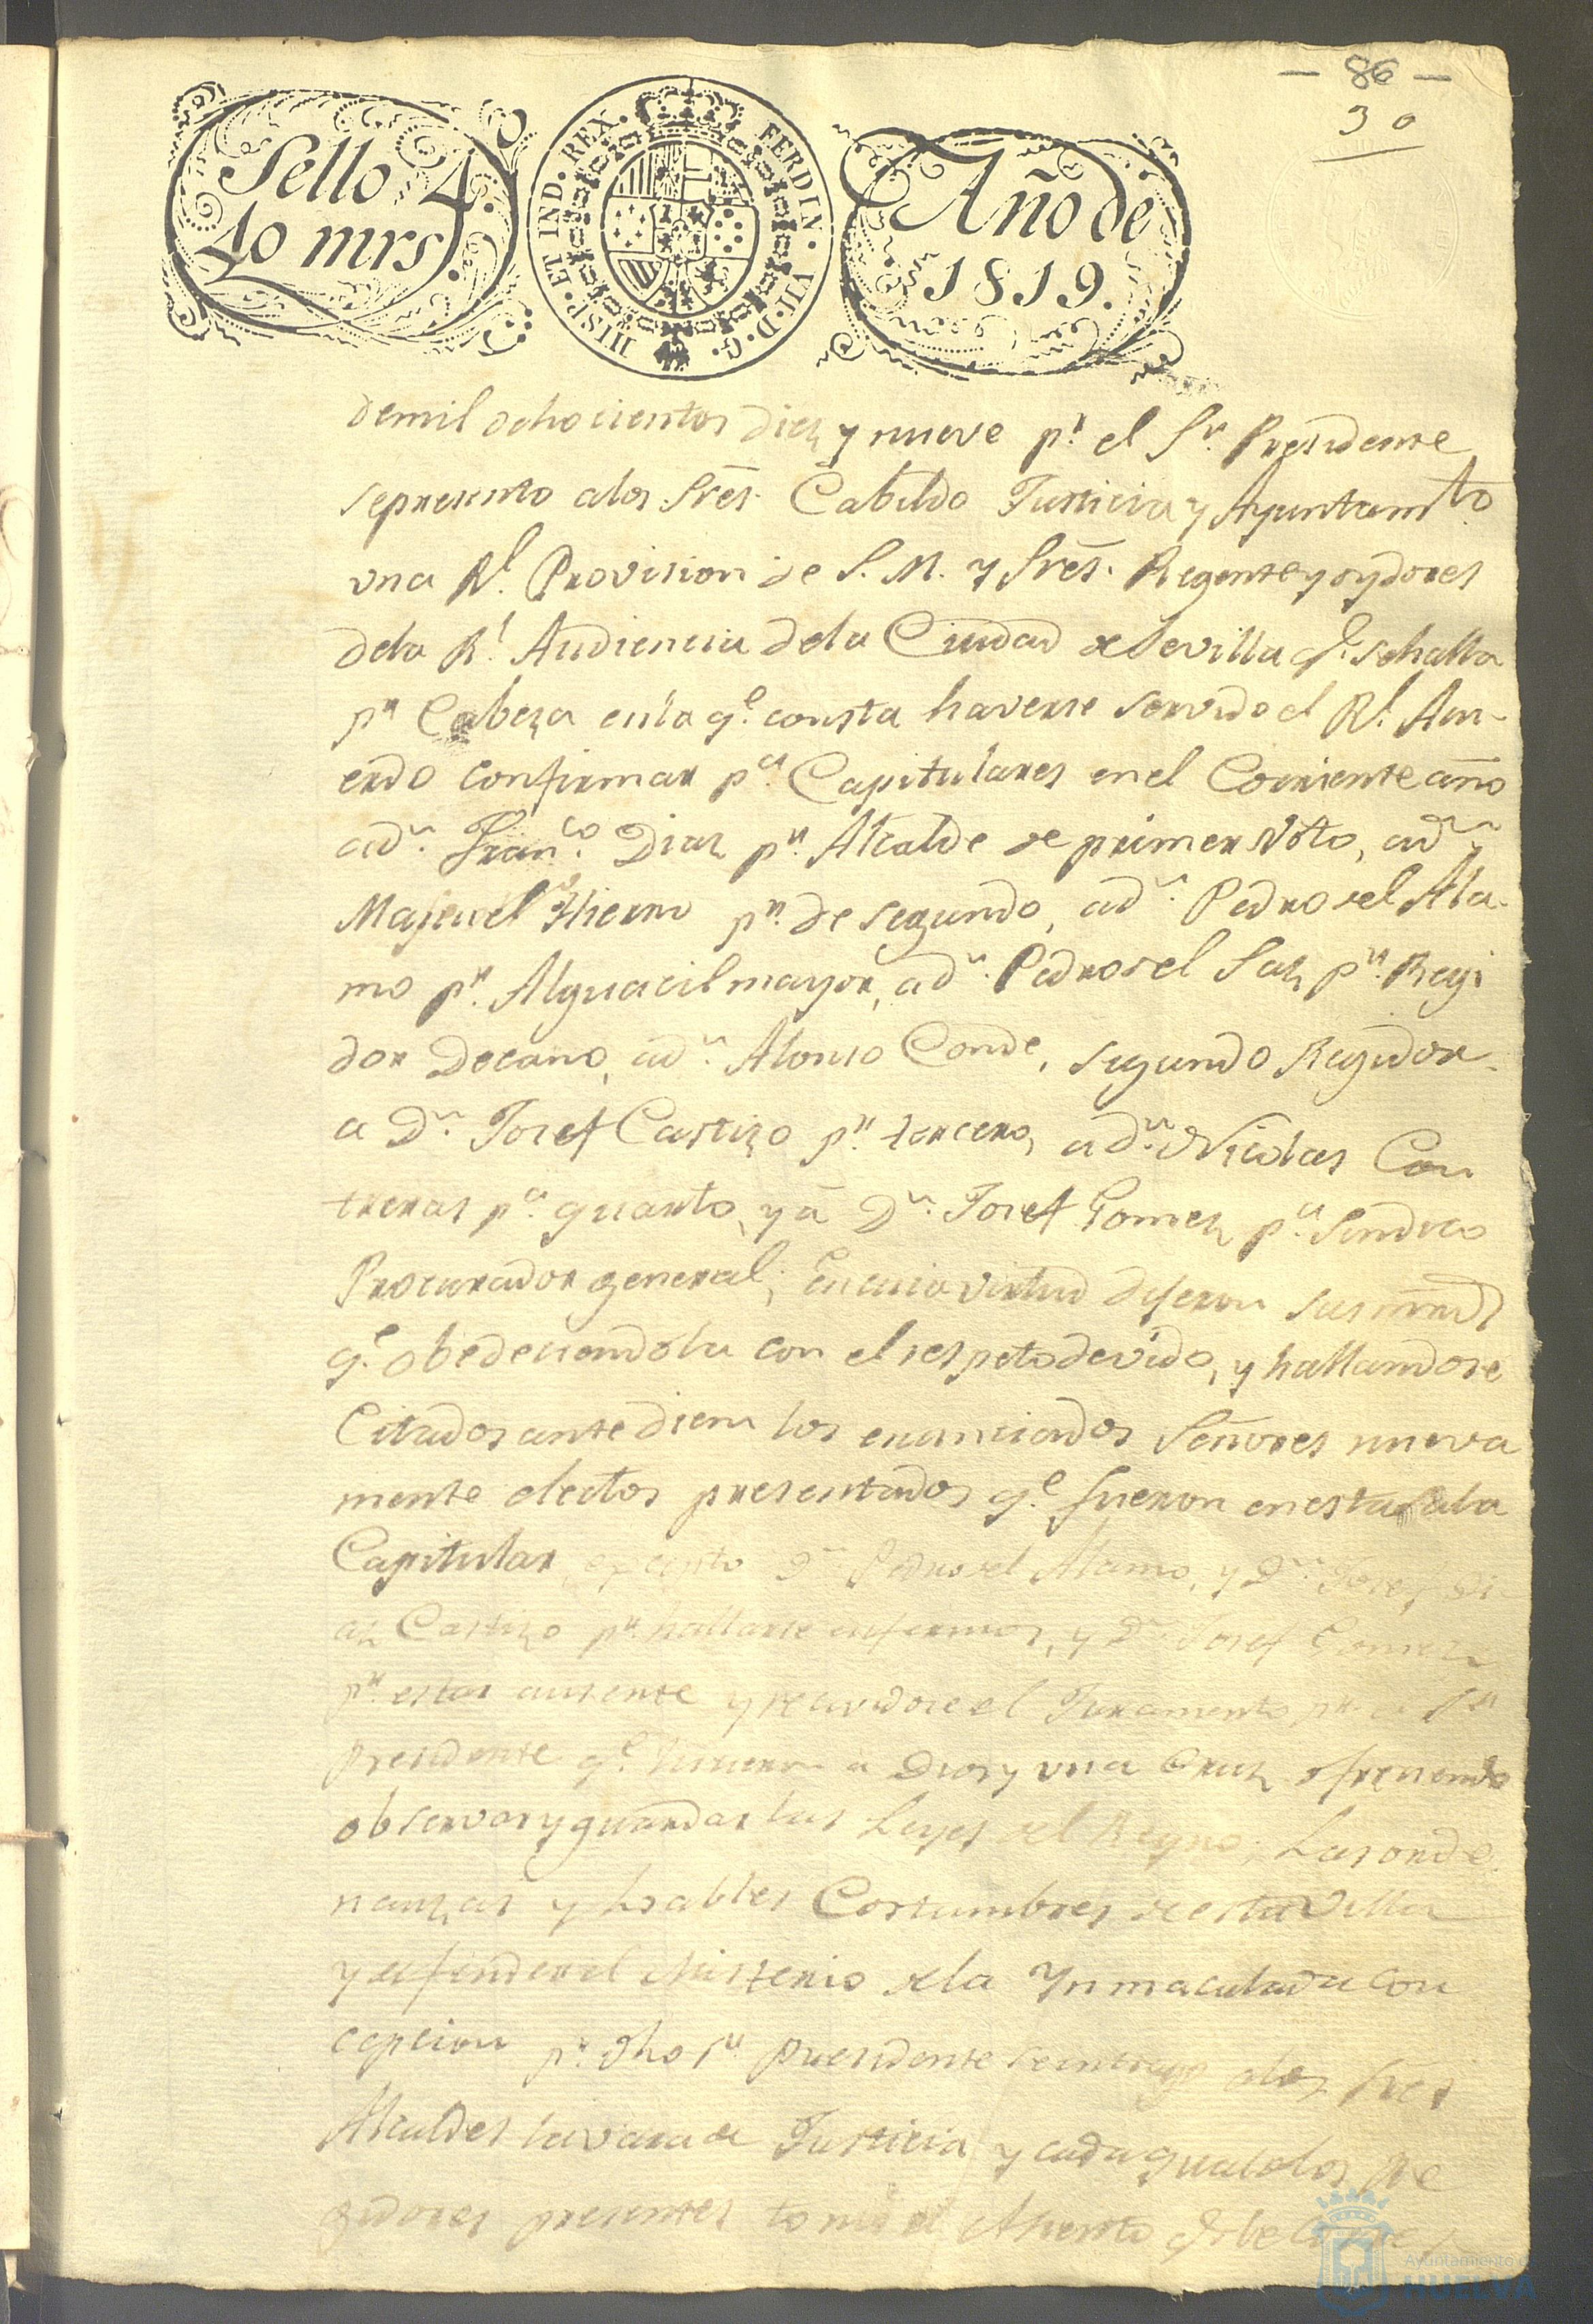 — 86 —
30
Sello 4.º
40 mrs.
HISP. ET IND. REX. FERDIN. VII. D. G.
Año de
1819.
demil ochocientos diez y nueve pr. el Sr. Presidente
sepresento alos Sres. Cabildo Justicia y Ayuntamto.
una Rl. Provision de S. M. y Sres. Regente y oydores
dela Rl. Audiencia dela Ciudad de Sevilla qe. sehalla
pr. Cabeza enla qe. consta haverse servido el Rl. Acu-
erdo confirmar pa. Capitulares enel Corriente año
adn. Franco. Diaz pr. Alcalde de primer Voto, adn.
Manuel Hierro pr. de segundo, adn. Pedro del Ala-
mo pr. Alguacil mayor, adn. Pedro del Saz pr. Regi
dor Decano, adn. Alonso Conde, segundo Regidor-
a Dn. Josef Castizo pr. tercero, adn. Nicolas Con
treras pa. quarto, y a Dn. Josef Gomez pa. Sindico
Procurador general; En cuia virtud dijeron sus mrds
qe. obedeciendola con el respeto devido, y hallandose
Citados ante diem los enunciados Señores nueva
mente electos presentados qe. fueron enesta Sala
Capitular, excepto Dn. Pedro del Alamo, y Dn. Josef Di
az Castizo pr. hallarse enfermos, y Dn. Josef Gomez
pr. estar ausente y recividose el Juramento pr. el Sr.
Presidente qe. hicieron a Dios y una Cruz ofreciendo
observar y guardar las Leyes del Reyno, Las orde
nanzas y loables Costumbres de esta Villa
y defender el Misterio dela Ynmaculada Con
cepcion pr. dho Sr. Presidente se entrego alos Sres
Alcaldes la vara de Justicia y cada qual delos Re
gidores presentes tomó el Asiento
Ayuntamiento de
HUELVA